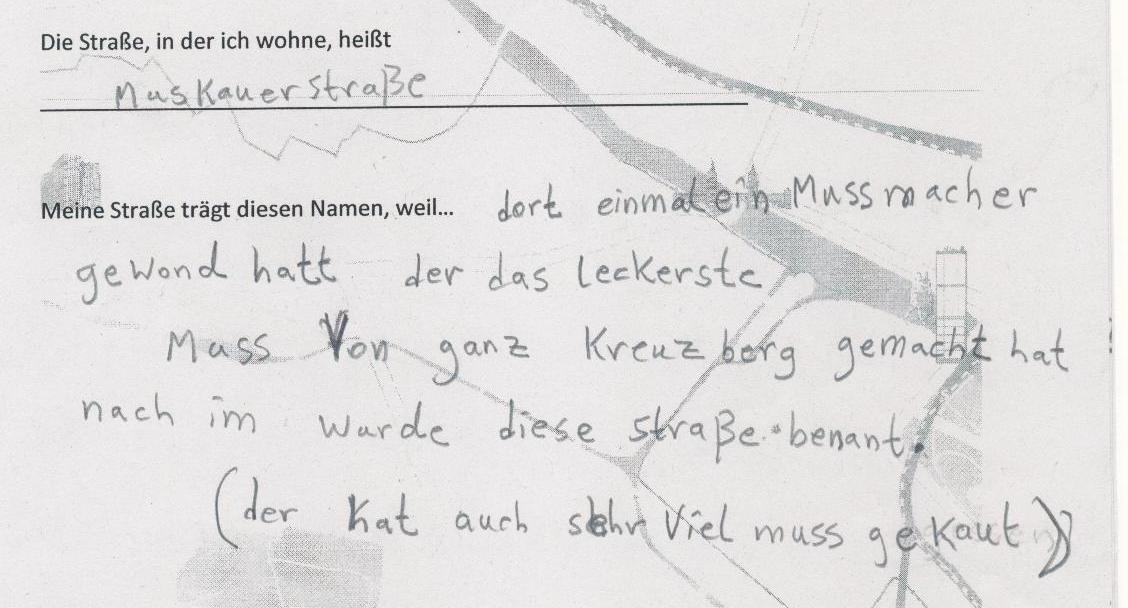 Die Straße, in der ich wohne, heißt
Muskauerstraße
Meine Straße trägt diesen Namen, weil... dort einmal ein Mussmacher
gewond hatt der das leckerste
Muss von ganz Kreuzberg gemacht hat
nach im wurde diese straße benant.
(der hat auch sehr viel muss gekaut)